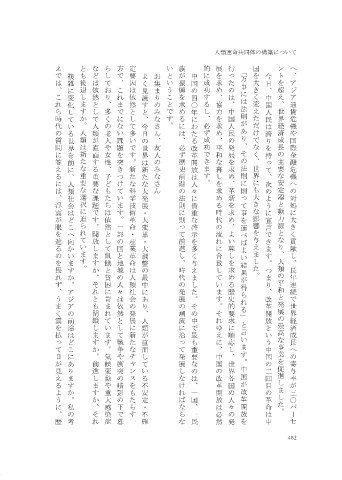 人類運命共同体の構築について
へ、アジア通貨危機や国際金融危機への対処に大きく貢献し、長年連続で世界経済成長への寄与率が三〇パーセ
ントを超え、世界経済成長の主要な安定器と動力源となり、人類の平和と発展の崇高な事業を促進しました。
今日、中国人民は誇りを持って、次のように宣言できます。つまり、改革開放という中国の二回目の革命は中
国を大きく変えただけでなく、世界にも大きな影響を与えました。
「万事には法則があり、その法則に則って事を運べばよい結果が得られる」と言います。中国が改革開放を
行ったのは、中国人民の発展を求め、革新を求め、よい暮しを求める歴史的要求に順応し、世界各国の人々の発
展を求め、協力を求め、平和な暮しを求める時代の流れに合致しています。それゆえに、中国の改革開放は必然
的に成功するし、必ず成功できます。
中国の四〇年にわたる改革開放は人々に貴重な啓示を多く与えました。その中で最も重要なのは、一国、一民
族が振興を求めるには、必ず歴史前進の法則に則って前進し、時代の発展の潮流に沿って発展しなければならな
いということです。
お集まりのみなさん、友人のみなさん
よく見渡すと、今日の世界は新たな大発展・大変革・大調整の最中にあり、人類が直面している不安定・不確
定要因は依然として多いです。新たな科学技術革命・産業革命は人類社会の発展に新たなチャンスをもたらす
一方で、これまでにない課題を突きつけています。一部の国と地域の人々は依然として戦争や衝突の暗影の下で暮
らしており、多くの老人や女性、子どもたちは依然として飢餓と貧困に苦まれています。気候変動や重大感染症
などは依然として人類が直面する重要な課題です。開放しますか、それとも閉鎖しますか、前進しますか、それ
とも後退しますか、人類は新たな重要な選択に迫られています。
複雑に変化している世界を前に、人類社会はどこへ向かいますか、アジアの前途はどこにありますか。私の考
えでは、これら時代の質問に答えるには、浮雲が眼を遮るのを畏れず、うまく雲を払って日が見えるように、歴
482